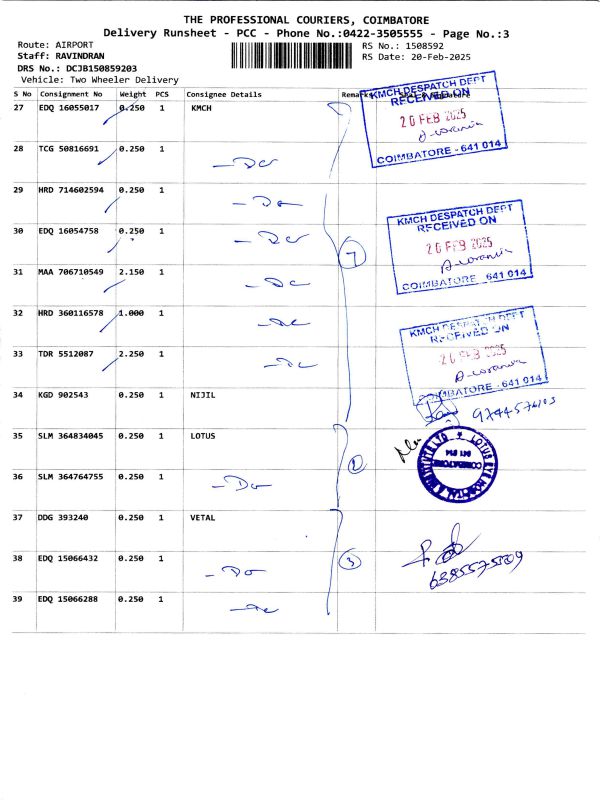 THE PROFESSIONAL COURIERS, COIMBATORE
Delivery Runsheet - PCC - Phone No.:0422-3505555 - Page No.:3
Route: AIRPORT
RS No.: 1508592
Staff: RAVINDRAN
RS Date: 20-Feb-2025
DRS No.: DCJB150859203
Vehicle: Two Wheeler Delivery
S No Consignment No Weight PCS Consignee Details Remarks
27 EDQ 16055017 0.250 1 KMCH
KMCH DESPATCH DEPT
RECEIVED ON
20 FEB 2025
COIMBATORE - 641 014
28 TCG 50816691 0.250 1 - Do
29 HRD 714602594 0.250 1 - Do
30 EDQ 16054758 0.250 1 - Do
KMCH DESPATCH DEPT
RECEIVED ON
20 FEB 2025
COIMBATORE 641 014
7
31 MAA 706710549 2.150 1 - Do
32 HRD 360116578 1.000 1 - Do
KMCH DESPATCH DEPT
RECEIVED ON
20 FEB 2025
COIMBATORE - 641 014
33 TDR 5512087 2.250 1 - Do
34 KGD 902543 0.250 1 NIJIL
35 SLM 364834045 0.250 1 LOTUS
LOTUS EYE HOSPITAL & INSTITUTE LTD
COIMBATORE
641 014
2
36 SLM 364764755 0.250 1 - Do
37 DDG 393240 0.250 1 VETAL
38 EDQ 15066432 0.250 1 - Do
3
39 EDQ 15066288 0.250 1 - Do